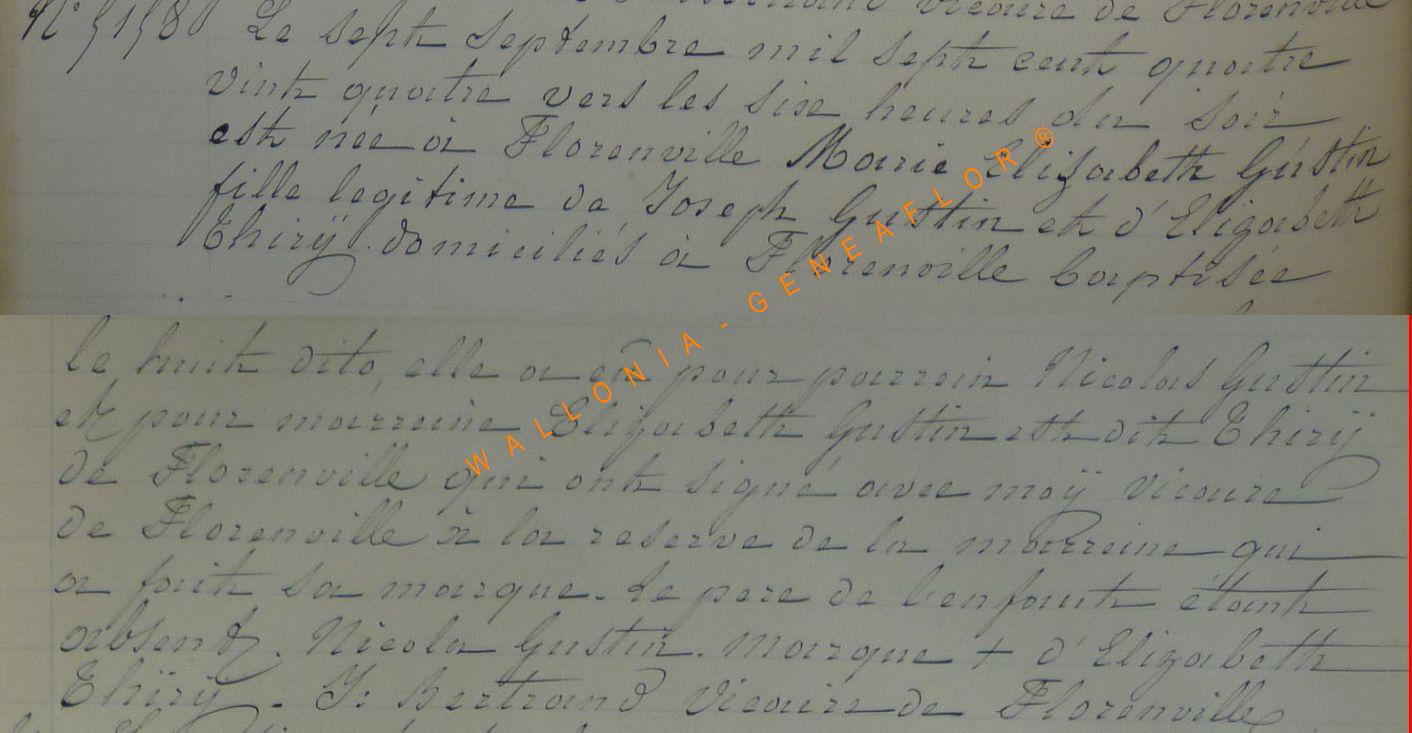 vicaire de Florenville
N° 5158 Le sept septembre mil sept cent quatre
vint quatre vers les six heures du soir
est née à Florenville Marie Elizabeth Gustin
fille legitime de Joseph Gustin et d'Elizabeth
Thirÿ domiciliés à Florenville baptisée
le huit dito, elle a eu pour parrein Nicolas Gustin
et pour marreine Elizabeth Gustin est dit Thirÿ
de Florenville qui ont signé avec moÿ vicaire
de Florenville à la reserve de la marreine qui
a fait sa marque. Le pere de l'enfant étant
absent. Nicola Gustin. Marque + d'Elizabeth
Thirÿ. J: Bertrand Vicaire de Florenville
WALLONIA - GENEAFLOR ®